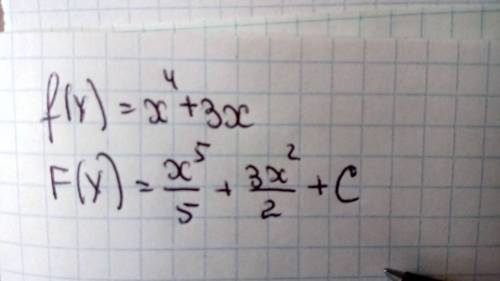 f(x) = x⁴ + 3x
F(x) = x⁵/5 + 3x²/2 + C